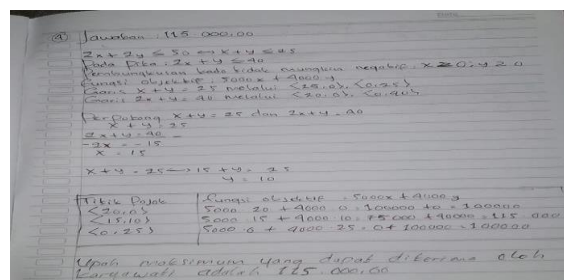 ④ Jawaban : 115 000.00
2x + 2y ≤ 50 → x + y ≤ 25
Pada Pita : 2x + y ≤ 40
tidak mungkin negatif. x ≥ 0; y ≥ 0
Fungsi objektif : 5000x + 4000y
Garis x + y = 25 melalui (25,0), (0,25)
Garis 2x + y = 40 melalui (20,0), (0,40)
Perpotong x + y = 25 dan 2x + y = 40
x + y = 25
2x + y = 40 -
-x = -15
x = 15
x + y = 25 → 15 + y = 25
y = 10
Titik Pojok fungsi objektif = 5000x + 4000y
(20,0) 5000 . 20 + 4000 . 0 = 100000 + 0 = 100000
(15,10) 5000 . 15 + 4000 . 10 = 75.000 + 40000 = 115 000
(0,25) 5000 . 0 + 4000 . 25 = 0 + 100000 = 100000
Upah maksimum yang dapat diterima oleh
karyawati adalah 115.000,00